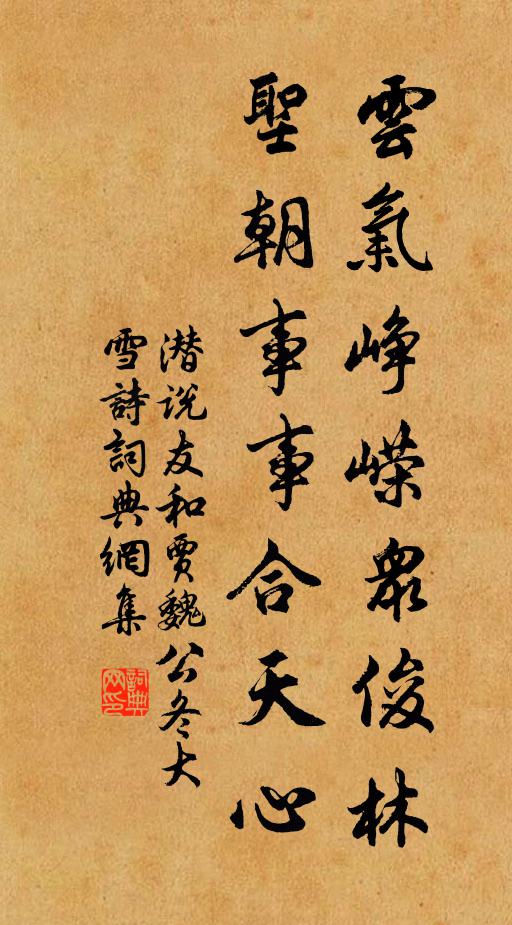 雲氣崢嶸衆俊林
聖朝事事合天心
潜说友和贾魏公冬大
雪詩詞典網集
詞典
网印